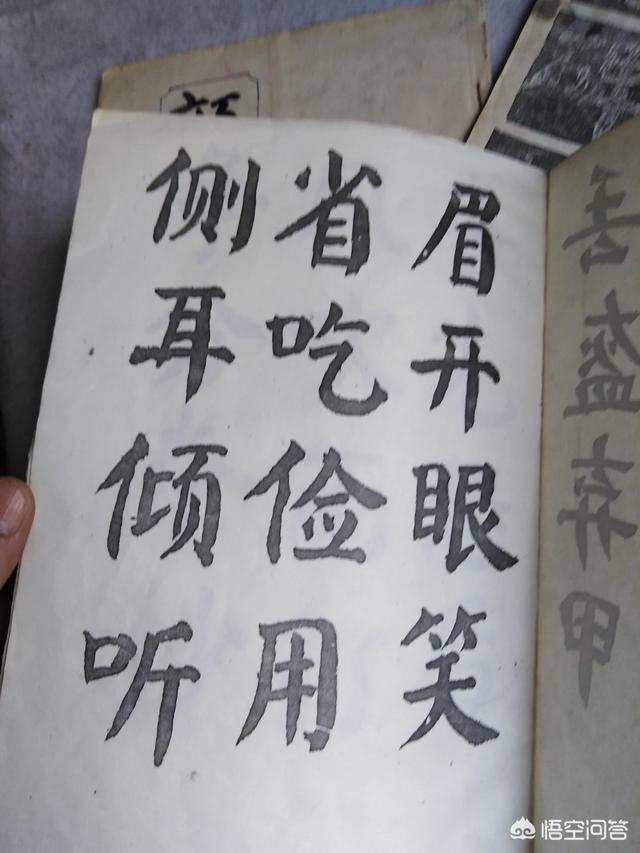 丢盔弃甲
眉开眼笑
省吃俭用
侧耳倾听
悟空问答